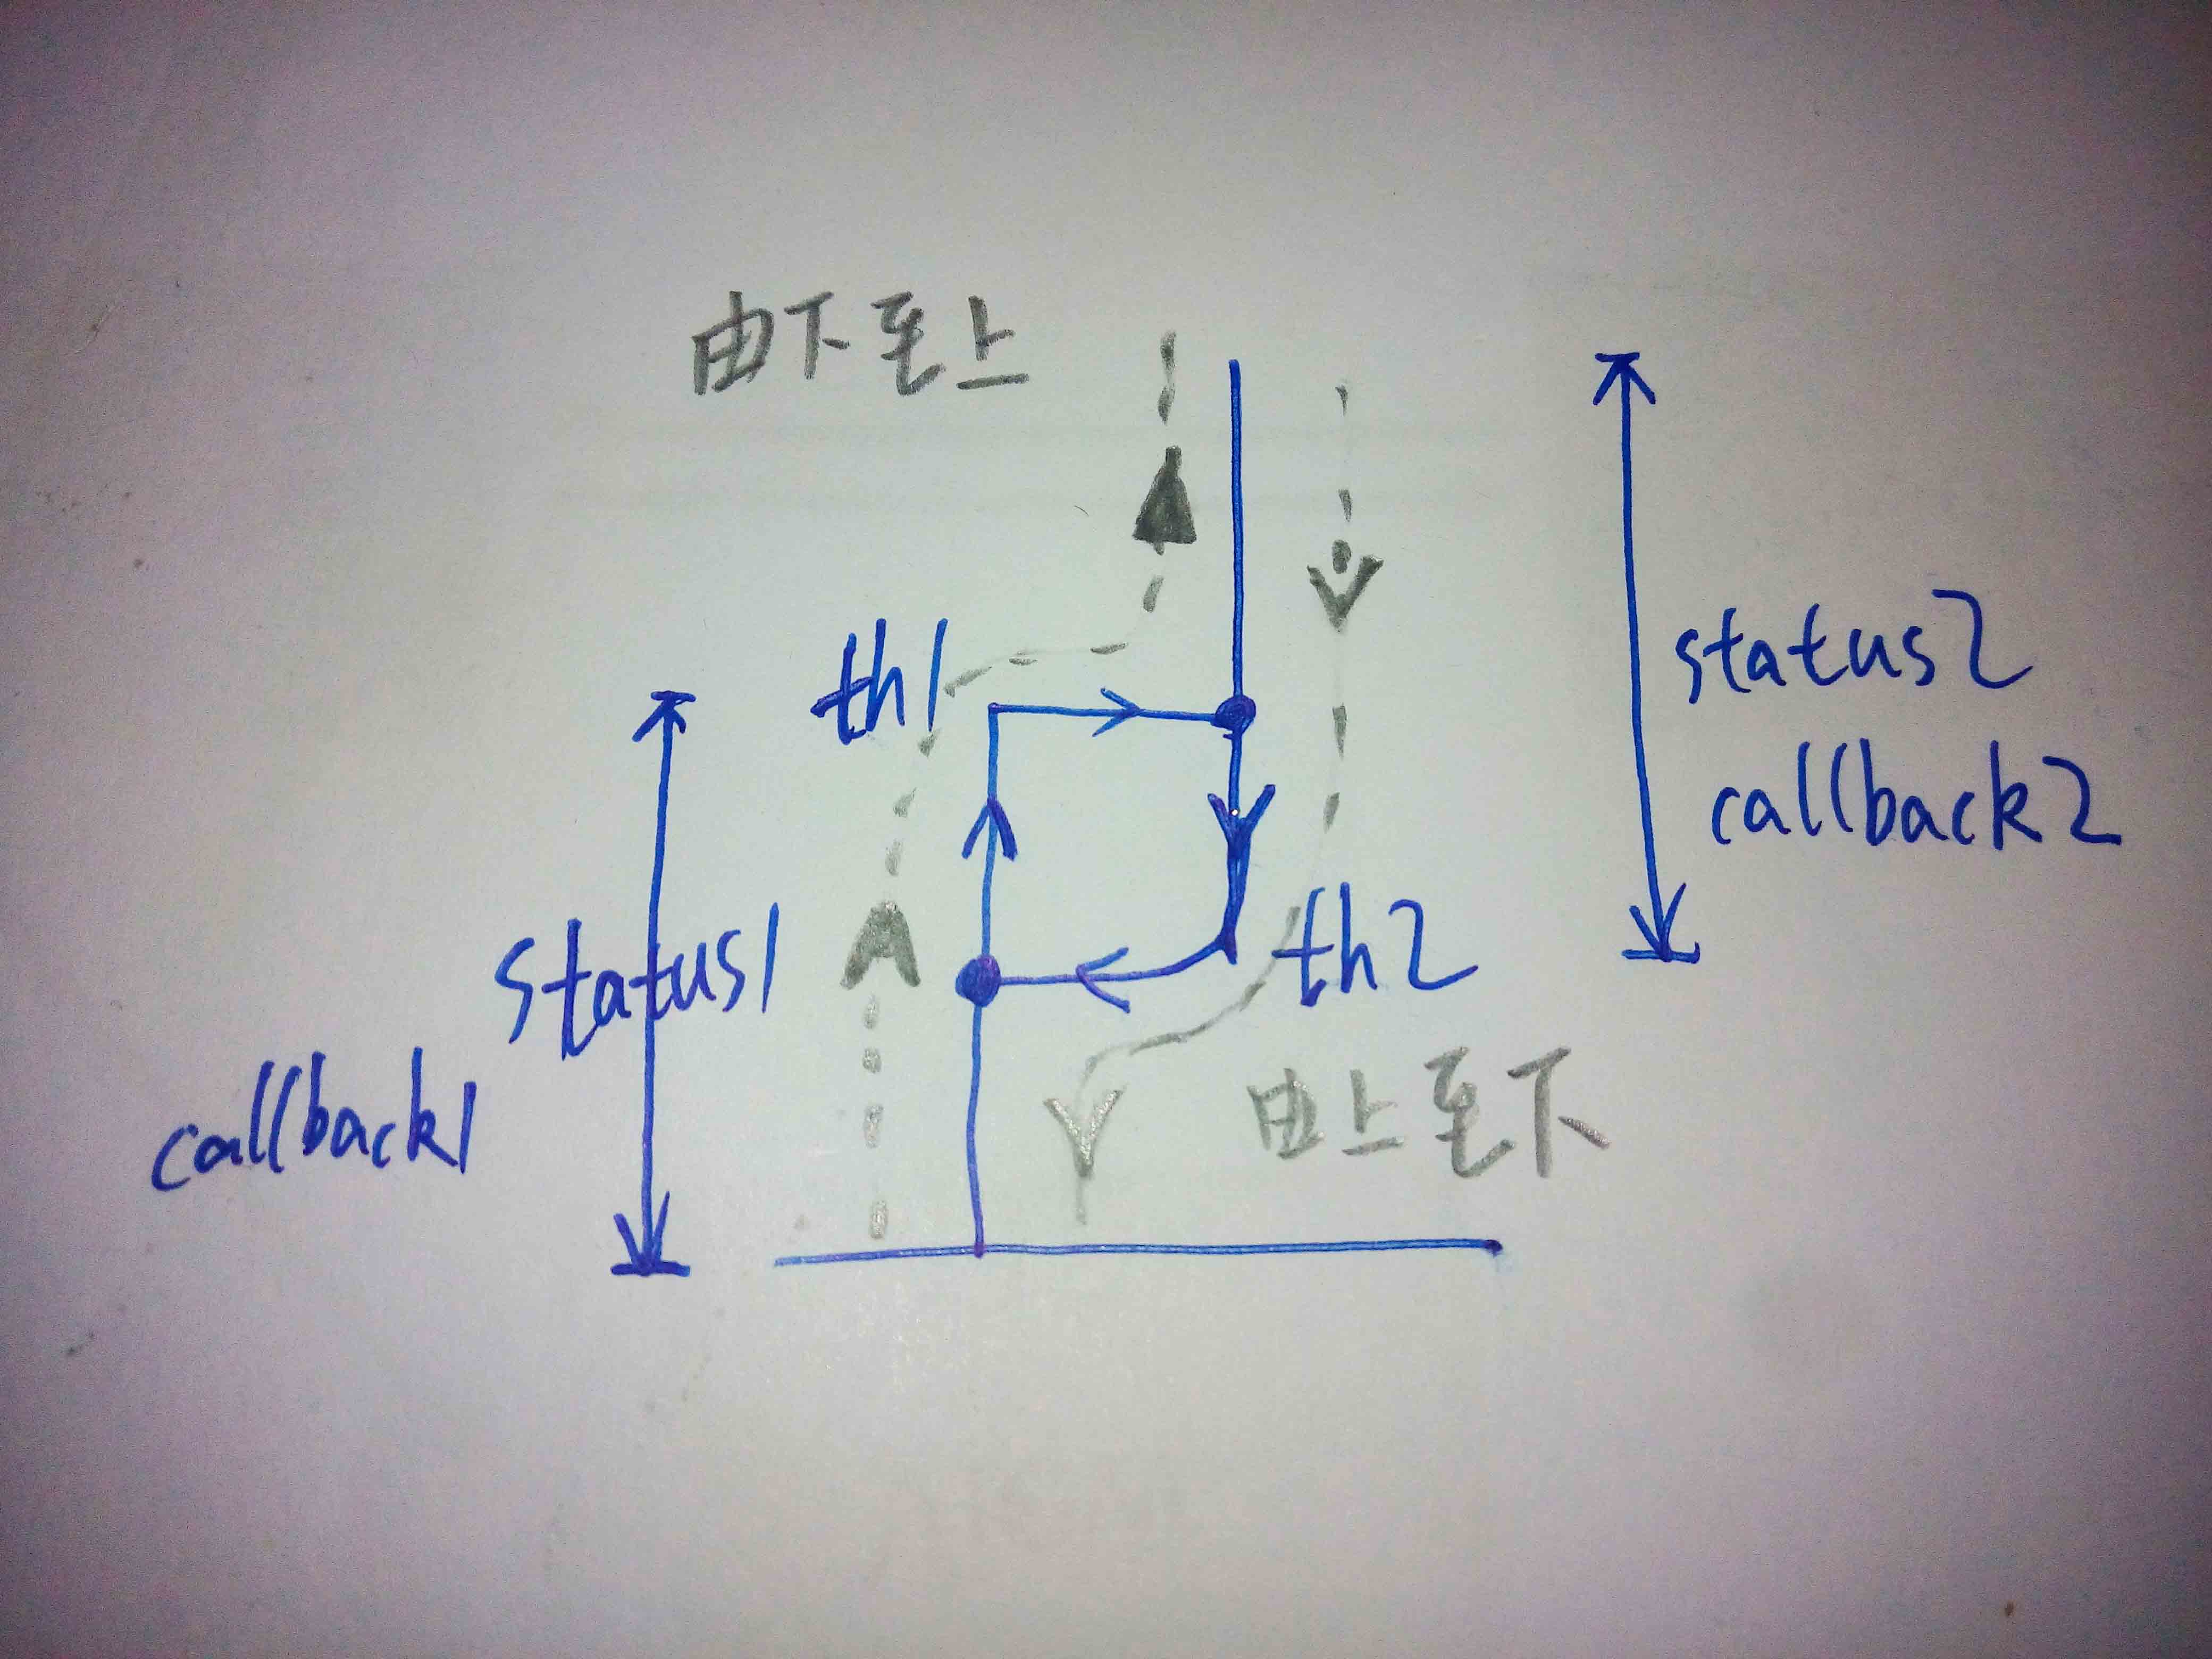 由下至上
th1
status2
callback2
status1
th2
callback1
由上至下